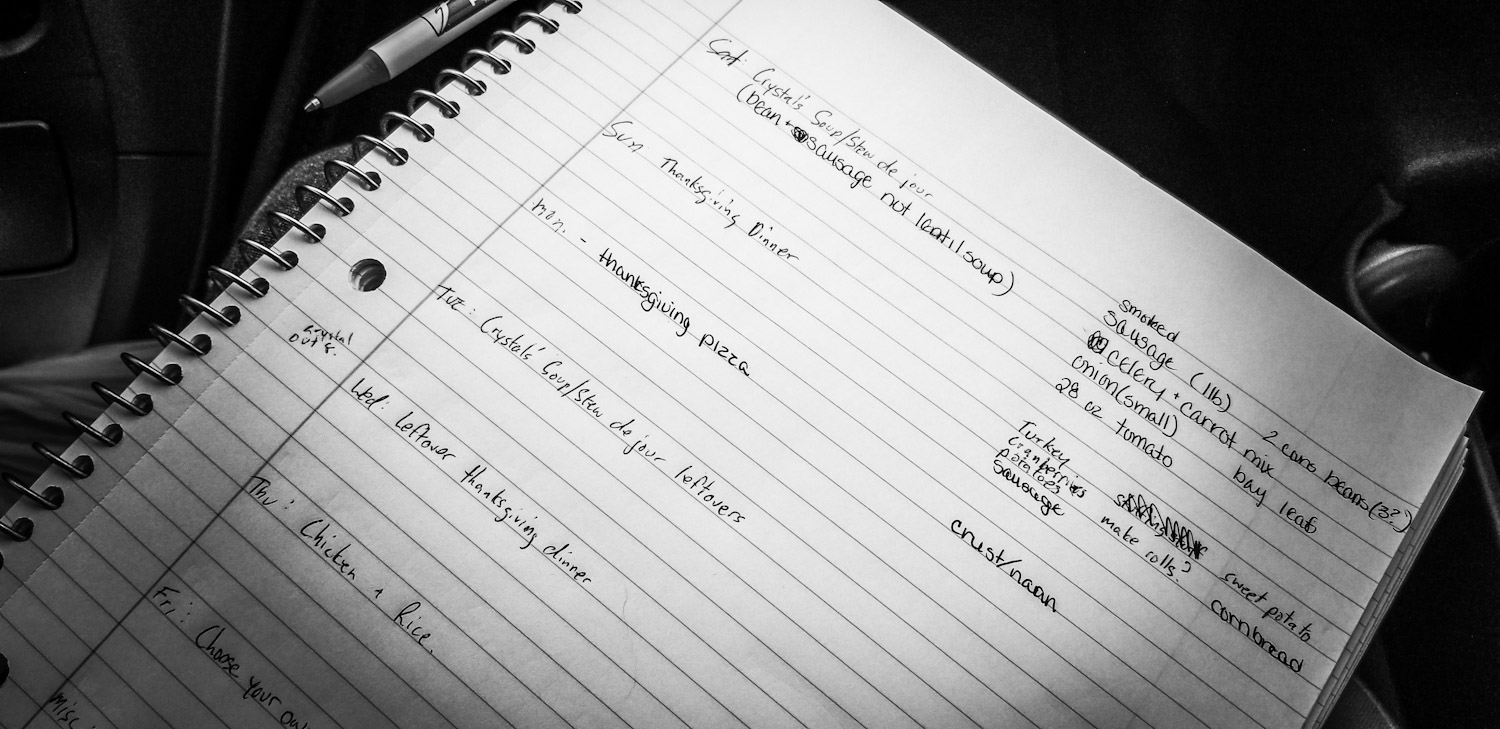 Sat: Crystal's Soup/Stew de jour
(bean + sausage not lentil soup)
smoked
sausage (1lb)
celery + carrot mix
onion (small)
28 oz tomato
2 cans beans (3?)
bay leaf
Sun Thanksgiving Dinner
Turkey
cranberries
potatoes
sausage
make rolls?
sweet potato
cornbread
Mon. - thanksgiving pizza
crust/naan
Tue: Crystals' Soup/Stew de jour leftovers
crystal
out 8.
Wed: Leftover thanksgiving dinner
Thu: Chicken + Rice.
Fri: Choose your own
Misc